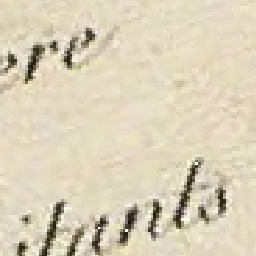 ere
itants